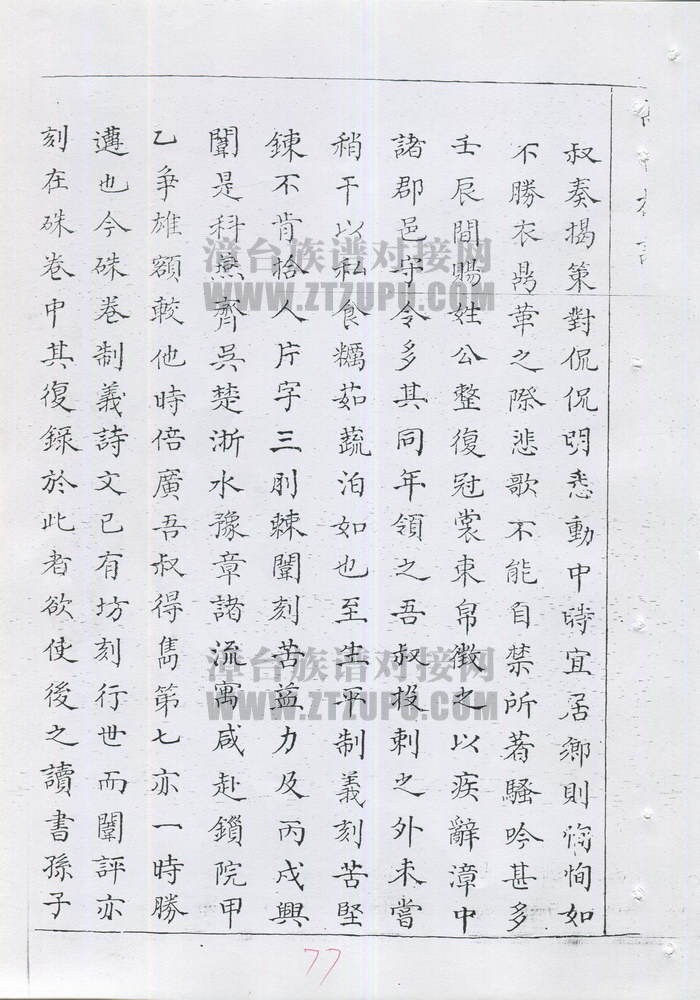 叔奏揭策對侃侃明悉動中時宜居鄉則恂恂如
不勝衣鼎革之際悲歌不能自禁所著騷吟甚多
壬辰間賜姓公整復冠裳束帛徵之以疾辭漳中
諸郡邑守令多其同年領之吾叔投刺之外未嘗
稍干以私食糲茹蔬泊如也至生平制義刻苦堅
鍊不肯拾人片字三刖棘闈刻苦益力及丙戌興
闈是科燕齊吳楚浙水豫章諸流寓咸赴鎖院甲
乙爭雄額較他時倍廣吾叔得雋第七亦一時勝
遘也今硃卷制義詩文已有坊刻行世而闈評亦
刻在硃卷中其復錄於此者欲使後之讀書孫子
漳台族谱对接网
WWW.ZTZUPU.COM
漳台族谱对接网
WWW.ZTZUPU.COM
77